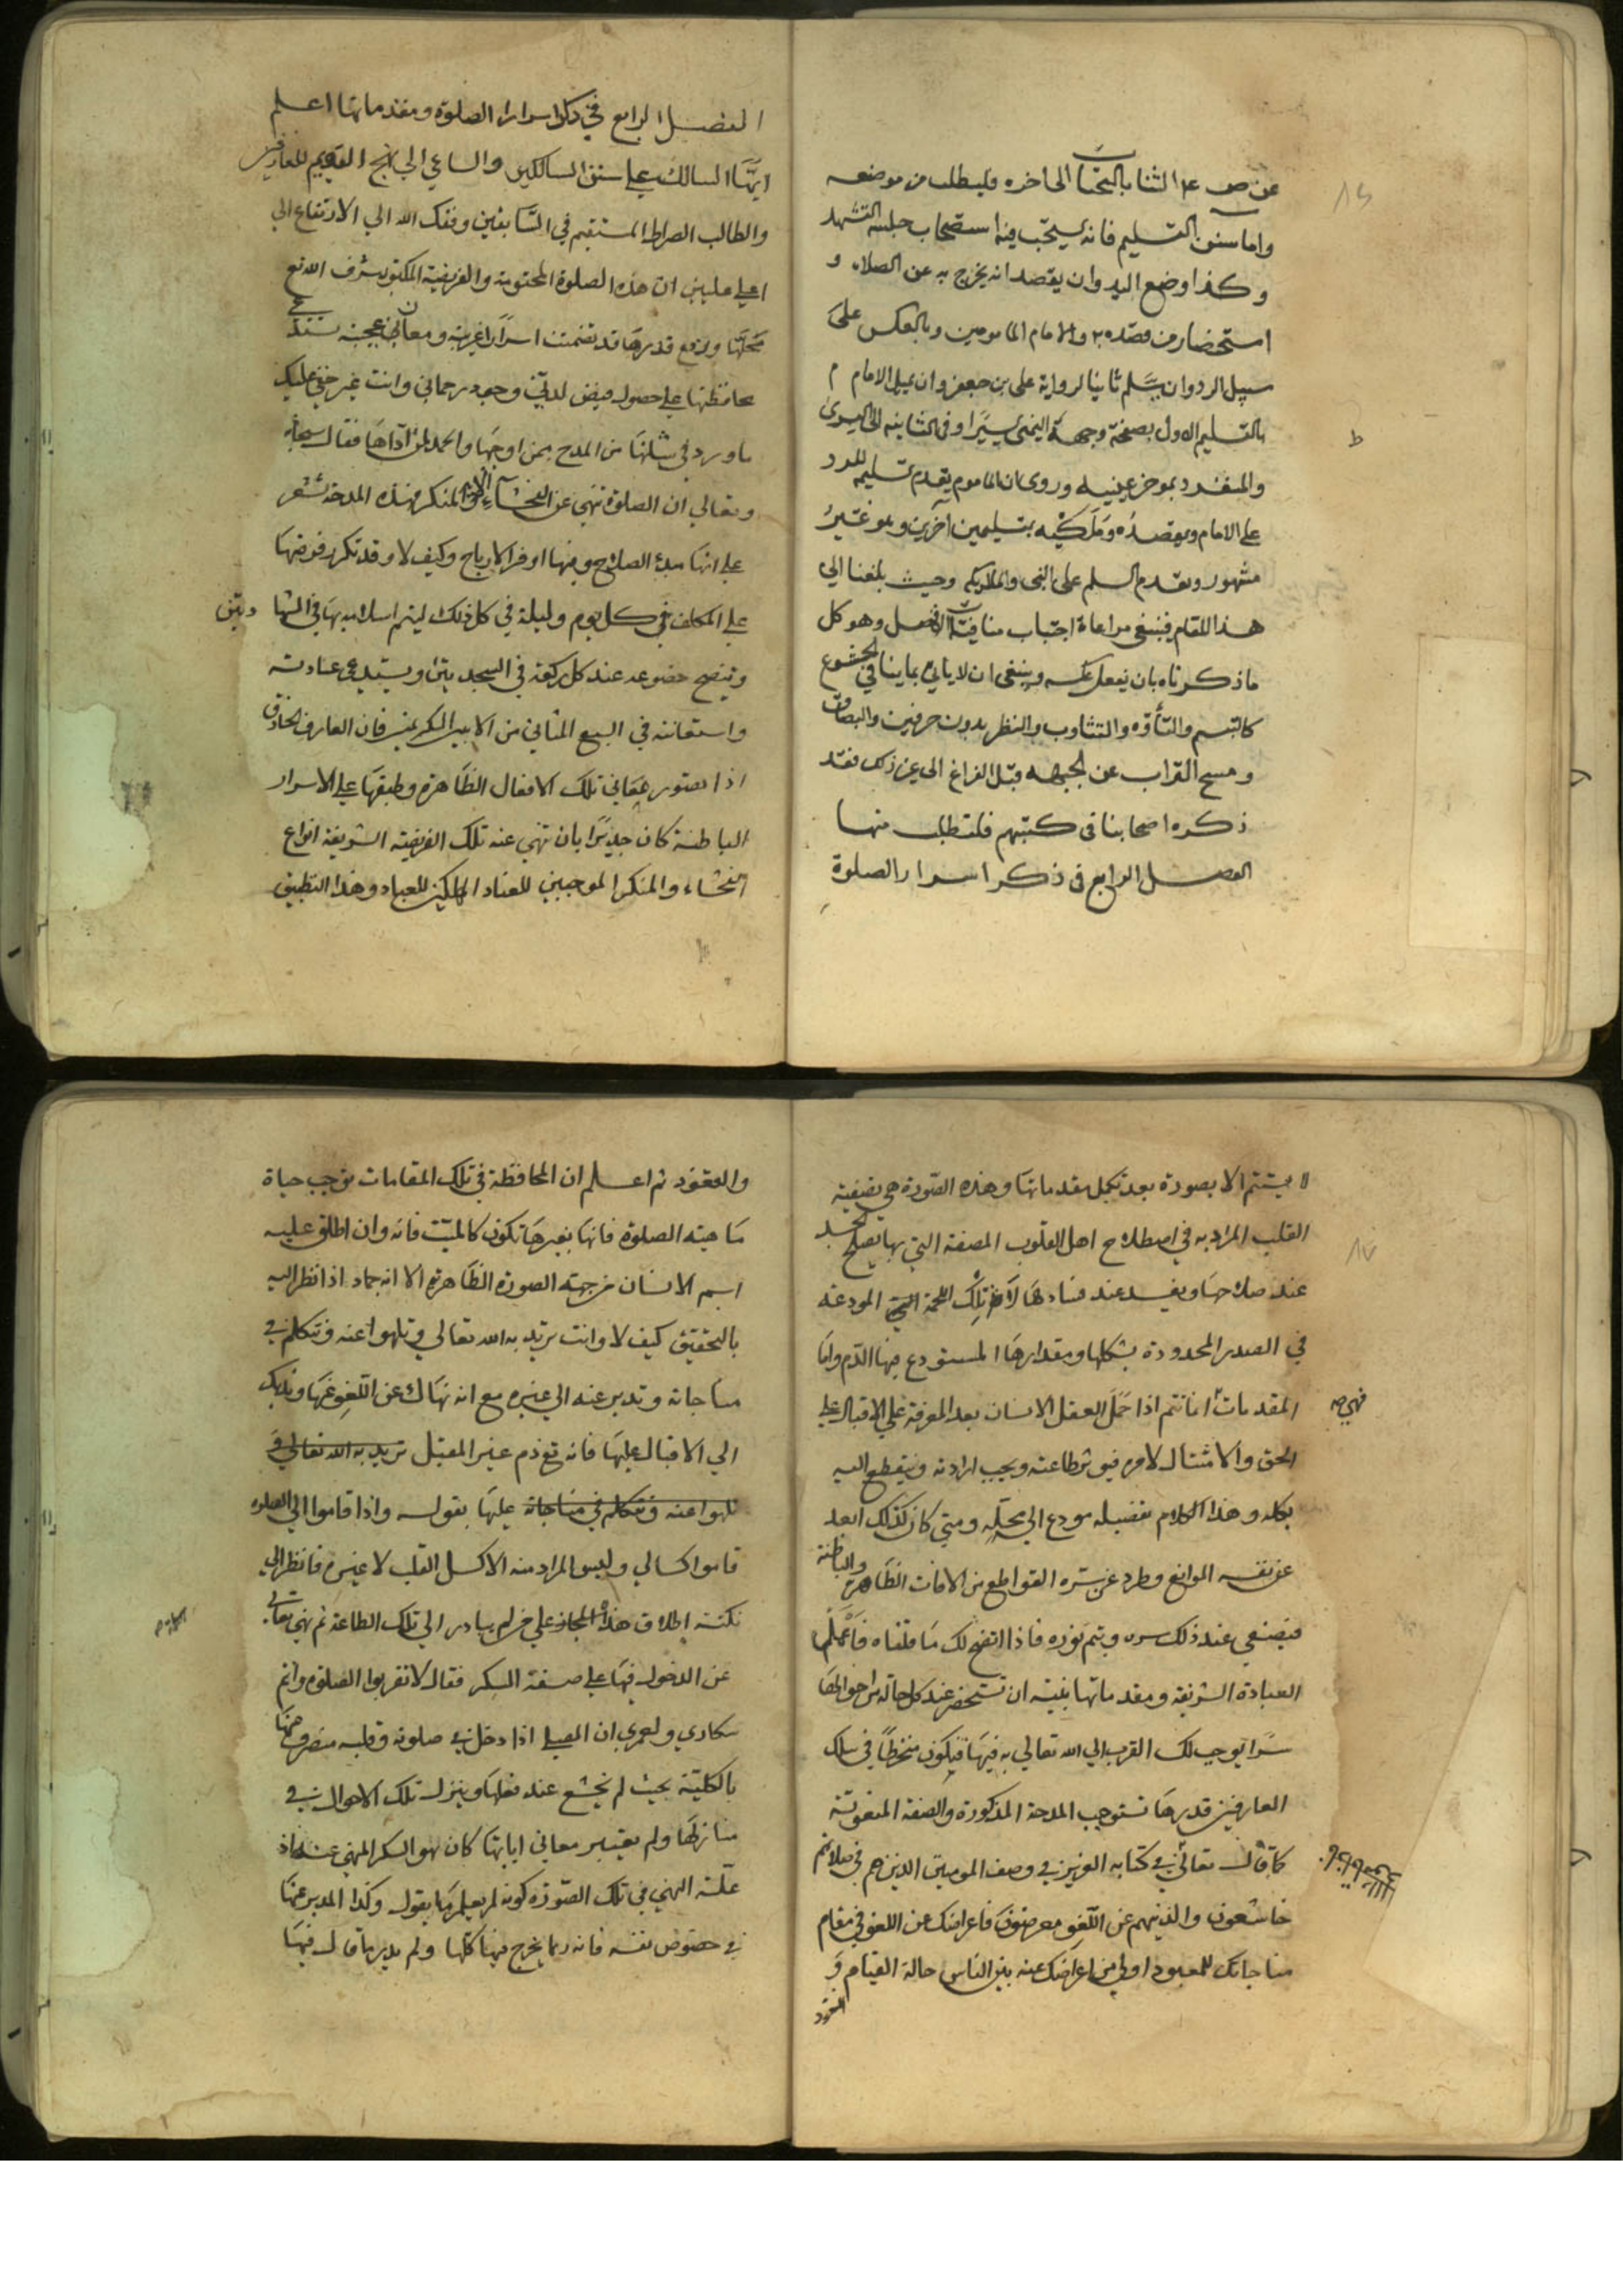 عن ص ع الثنا بالتحيات الى اخره فليطلب من موضعه
واما سنن التسليم فانه يستحب فيه استصحاب جلسة التشهد
وكذا وضع اليد وان يقصد انه يخرج به عن الصلاة و
والامام المامومين وبالعكس على
سبيل الرد وان يسلم ثانيا لرواية على بن جعفر وان يميل الامام م
بالتسليم الاول بصفحة وجهه اليمنى يسيرا وفى الثانيه الى اليسرى
والمنفرد بموخر عينيه وروى ان الماموم يقدم تسليمه للرد
على الامام ويقصده وملكيه بتسليمين آخرين وهو غير
مشهور ويقدم السلم على النبى والملائكه وحيث بلغنا الى
هذا المقام فينبغى مراعاة اجتناب منافيات الافضل وهو كل
ماذكرناه بان يفعل عكسه وينبغى ان لا ياتى بما ينافى الخشوع
كالتبسم والتأوه والتثاوب والنظر بدون حرفين والبصاق
ومسح التراب عن الجبهه قبل الفراغ الى غير ذلك فقد
ذكره اصحابنا فى كتبهم فلتطلب منها
الفصل الرابع فى ذكر اسرار الصلوة
الفصل الرابع في ذكر اسرار الصلوة ومقدماتها اعلم
ايها السالك على سنن السالكين والساعي الى نهج القويم للعارفين
والطالب الصراط المستقيم في السابقين وفقك الله الي الارتفاع الي
اعلي عليين ان هذه الصلوة المحتومة والفريضة المكتوبه شرف الله تع
محلها ورفع قدرها قد تضمنت اسرارا غريبة ومعاني عجيبة
محافظتها على حصول فيض لدني وجود رحماني وانت غير خفي عليك
ما ورد في شانها من المدح بمن اوجبها والحمد لمن آداها فقال سبحانه
وتعالي ان الصلوة تنهي عن الفحشآء والمنكر فهذه المدحة تشعر
على انها مبدء الصلاح وفيها اوفر الارباح وكيف لا وقد تكرر فرضها
على المكلف في كل يوم وليلة في كل ذلك
ويتضح خضوعه عند كل ركعة في السجدتين ويستدعى عنادته
واستعانته في السبع المثاني فان العارف الحاذق
اذا تصور معاني تلك الافعال الظاهرة وطبقها على الاسرار
الباطنة كان جديرا بان تنهي عنه تلك الفريضة الشريفة انواع
الفحشاء والمنكر الموجبين للعناد المهلكين للعباد وهذا التطبيق
لا يستتم الا بصورة بعد تكمل مقدماتها وهذه الصورة هي تصفية
القلب المراد به في اصطلاح اهل القلوب المضغة التي بها يصلح الجسد
عند صلاحها ويفسد عند فسادها لا تلك اللحمة المودعة
في الصدر المحدودة بشكلها ومقدارها المستودع فيها الدم واما
المقدمات انما تتم اذا حمل العقل الانسان بعد المعرفة على الاقبال على
الحق والامتثال لامره فيوثر طاعته ويجيب ارادته وينقطع اليه
بكله وهذا الكلام تفصيله مودع الي محله ومتي كان كذلك ابعد
عن نفسه الموانع وطرد عن سره القواطع من الافات الظاهرة والباطنة
فيصفي عند ذلك سره ويتم نوره فاذا اتضح لك ما قلناه فاعلم ان
العبادة الشريفة ومقدماتها ان تستحضر عند كل حالة من احوالها
سرا يوجب لك القرب الي الله تعالي به فيها فيكون منخرطا في سلك
العارفين قدرها تستوجب المدحة المذكورة والصفة المنعوتة
كما قال تعالي في كتابه العزيز في وصف المومنين الذين هم في صلاتهم
خاشعون والذينهم عن اللغو معرضون فاعراضك عن اللغو في مقام
مناجاتك للمعبود اولى من اعراضك عنه بين الناس حالة القيام و
القعود
والقعود ثم اعلم ان المحافظة في تلك المقامات توجب حياة
ماهية الصلوة فانها بغيرها تكون كالميت فانه وان اطلق عليه
اسم الانسان من جهته الصورة الظاهرة الا انه جماد اذا نظر اليه
بالتحقيق كيف لا وانت تريد به الله تعالي وتلهوا عنه وتتكلم في
مناجاته وتدبر عنه الى غيره مع انه نهاك عن اللغو عنها ويدلك
الي الاقبال عليها فانه تع ذم غير المقبل تريد به الله تعالي و
تلهوا عنه وتتكلم في مناجاته عليها بقوله واذا قاموا الي الصلوة
قاموا كسالي وليس المراد منه الا كسل القلب لا غيره فانظر الي
نكتة اطلاق هذا المجاز على من لم يبادر الي تلك الطاعة ثم نهي تعالي
عن الدخول فيها على صفة السكر فقال لا تقربوا الصلوة وانتم
سكاري ولعمري ان المصلي اذا دخل في صلوته وقلبه منصرف عنها
بالكلية بحيث لم يخشع عند فعلها وينزل تلك الاحوال في
منازلها ولم يعتبر معاني اياتها كان هو السكر المنهي عنه اذ
علة النهي في تلك الصورة كونه لم يعلم ما يقول وكذا المدبر عنها
في خصوص نفسه فانه ربما يخرج منها كلها ولم يدر ما قال فيها